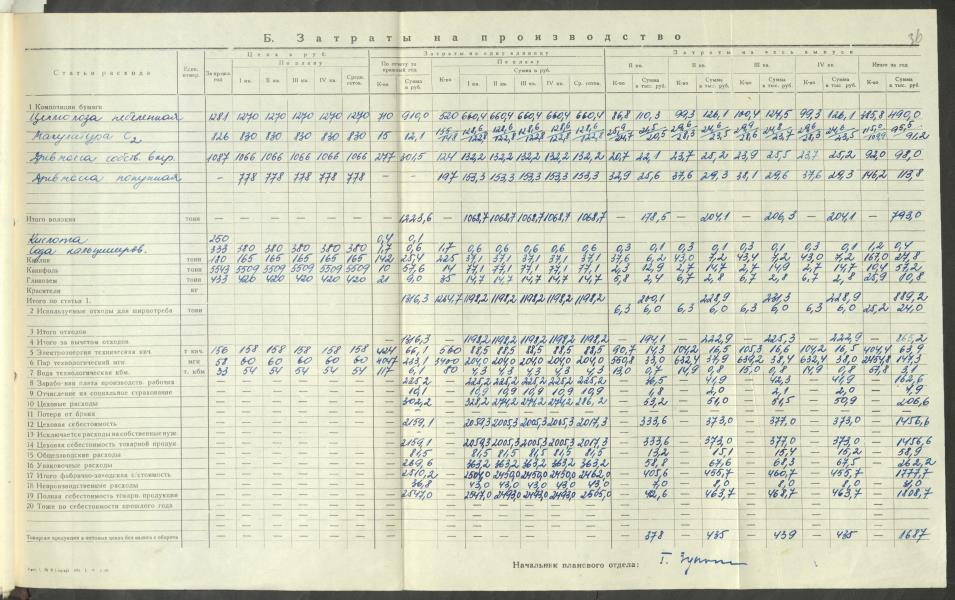 36
Б. Затраты на производство
Статьи расхода Един. измер. Цена в руб. Затраты на одну единицу Затраты на весь выпуск
За прош. год По плану По отчету за прошлый год По плану II кв. III кв. IV кв. Итого за год
I кв. II кв. III кв. IV кв. К-во Сумма в руб. К-во Сумма в руб. I кв. II кв. III кв. IV кв. Ср. сотов. К-во Сумма в тыс. руб. К-во Сумма в тыс. руб. К-во Сумма в тыс. руб. К-во Сумма в тыс. руб. К-во Сумма в тыс. руб.
1 Композиция бумаги
Целлюлоза небеленая 1281 1270 1270 1270 1270 1270 710 910,0 520 660,4 660,4 660,4 660,4 660,4 86,8 110,3 99,3 126,1 124,5 99,3 126,1 385,8 490,0
Макулатура С2 826 830 830 830 830 830 15 12,1
Древмасса собств. выр. 1087 1066 1066 1066 1066 1066 277 301,5 124 132,2 132,2 132,2 132,2 132,2 20,7 22,1 23,7 25,2 23,9 25,5 23,7 25,2 92,0 98,0
Древмасса покупная — 778 778 778 778 778 — — 197 153,3 153,3 153,3 153,3 153,3 32,9 25,6 37,6 29,3 38,1 29,6 37,6 29,3 146,2 113,8
Итого волокна тонн — — — — — — — 1223,6 — 1068,7 1068,7 1068,7 1068,7 1068,7 — 178,5 — 204,1 — 206,3 — 204,1 — 793,0
Кислота 250 0,4 0,1
333 380 380 380 380 380 1,7 0,6 1,7 0,6 0,6 0,6 0,6 0,6 0,3 0,1 0,3 0,1 0,3 0,1 0,3 0,1 1,2 0,4
Каолин тонн 180 165 165 165 165 165 142 25,4 225 37,1 37,1 37,1 37,1 37,1 37,6 6,2 43,0 7,2 43,4 7,2 43,0 7,2 167,0 27,8
Канифоль тонн 5543 5509 5509 5509 5509 5509 10 57,6 14 77,1 77,1 77,1 77,1 77,1 2,3 12,9 2,7 14,7 2,7 14,9 2,7 14,7 10,4 57,2
Глинозем тонн 433 420 420 420 420 420 21 9,0 35 14,7 14,7 14,7 14,7 14,7 5,8 2,4 6,7 2,8 6,7 2,8 6,7 2,8 25,9 10,8
Красители кг
Итого по статье 1. 1316,3 1198,2 1198,2 1198,2 1198,2 200,1 228,9 231,3 228,9 889,2
2 Используемые отходы для ширпотреба тонн 6,3 6,0 6,3 6,0 6,3 6,0 6,3 6,0 25,2 24,0
3 Итого отходов
4 Итого за вычетом отходов 194,1 222,9 225,3 222,9 865,2
5 Электроэнергия техническая квч. т квч. 156 158 158 158 158 158 424 66,1 560 88,5 88,5 88,5 88,5 88,5 90,7 14,3 104,2 16,5 105,3 16,6 104,2 16,5 404,4 63,9
6 Пар технологический мгк. мгк 58 60 60 60 60 60 3400 204,0 204,0 204,0 204,0 204,0 550,8 33,0 632,4 37,9 639,2 38,4 632,4 38,0 2454,8 147,3
7 Вода технологическая кбм. т. кбм 33 54 54 54 54 54 117 6,1 80 4,3 4,3 4,3 4,3 4,3 13,0 0,7 14,9 0,8 15,0 0,8 14,9 0,8 57,8 3,1
8 Заработная плата производств. рабочих 225,2 225,2 225,2 225,2 225,2 225,2 36,5 41,9 42,3 41,9 162,6
9 Отчисление на социальное страхование 10,1 10,9 10,9 10,9 10,9 10,9 1,8 2,0 2,1 2,0 7,9
10 Цеховые расходы 302,2 328,2 274,2 274,2 274,2 286,2 53,2 51,0 51,5 50,9 206,6
11 Потери от брака
12 Цеховая себестоимость 2159,1 2059,3 2005,3 2005,3 2005,3 2017,3 333,6 373,0 377,0 373,0 1456,6
13 Исключается расходы на собственные нуж
14 Цеховая себестоимость товарной продук 2159,1 2059,3 2005,3 2005,3 2005,3 2017,3 333,6 373,0 377,0 373,0 1456,6
15 Общезаводские расходы 81,5 81,5 81,5 81,5 81,5 81,5 13,2 15,1 15,4 15,2 58,9
16 Упаковочные расходы 269,6 363,2 363,2 363,2 363,2 363,2 58,8 67,6 68,3 67,5 262,2
17 Итого фабрично-заводская с/стоимость 2510,2 2504,0 2450,0 2450,0 2450,0 2462,0 405,6 455,7 460,7 455,7 1777,7
18 Непроизводственные расходы 36,8 43,0 43,0 43,0 43,0 43,0 7,0 8,0 8,0 8,0 31,0
19 Полная себестоимость товарн. продукции 2547,0 2547,0 2493,0 2493,0 2493,0 2505,0 412,6 463,7 468,7 463,7 1808,7
20 Тоже по себестоимости прошлого года
Товарная продукция в оптовых ценах без налога с оборота 378 435 439 435 1687
Начальник планового отдела: